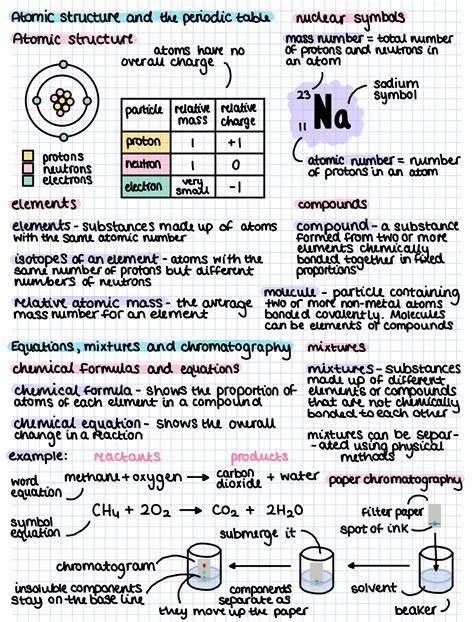 Atomic structure and the periodic table
Atomic structure
atoms have no
overall charge
protons
neutrons
electrons
particle relative mass relative charge
proton 1 +1
neutron 1 0
electron very small -1
nuclear symbols
mass number = total number
of protons and neutrons in
an atom
23
11
Na
sodium
symbol
atomic number = number
of protons in an atom
elements
elements - substances made up of atoms
with the same atomic number
isotopes of an element - atoms with the
same number of protons but different
numbers of neutrons
relative atomic mass - the average
mass number for an element
compounds
compound - a substance
formed from two or more
elements chemically
bonded together in fixed
proportions
molecule - particle containing
two or more non-metal atoms
bonded covalently. Molecules
can be elements or compounds
Equations, mixtures and chromatography
chemical formulas and equations
chemical formula - shows the proportion of
atoms of each element in a compound
chemical equation - shows the overall
change in a reaction
example: reactants products
word
equation
methane + oxygen → carbon dioxide + water
symbol
equation
CH4 + 2O2 → CO2 + 2H2O
mixtures
mixtures - substances
made up of different
elements or compounds
that are not chemically
bonded to each other
mixtures can be separ-
-ated using physical
methods
paper chromatography
filter paper
spot of ink
solvent
beaker
submerge it
components
separate as
they move up the paper
chromatogram
insoluble components
stay on the base line